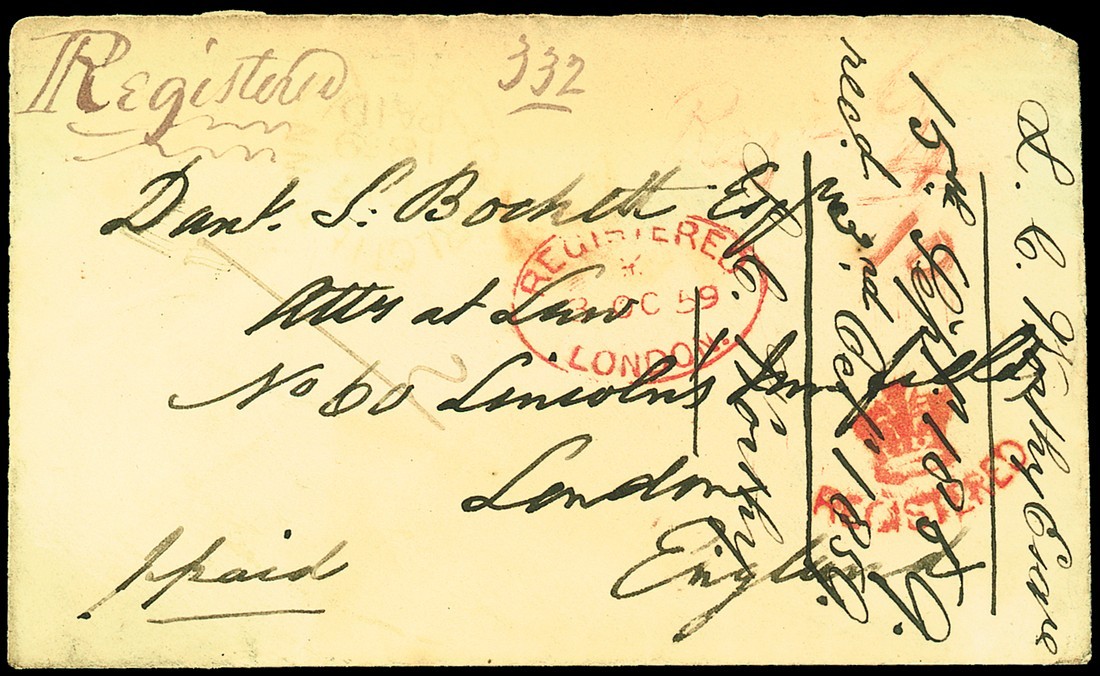 Registered
332
Danl. S. Bockett Esq
Atty at Law
No 60 Lincoln's Inn fields
London
England
ppaid
REGISTERED
3 OC 59
LONDON.
REGISTERED
L. C. Worthy Esqre
15th Septr 1859.
recd 3rd Oct 1859.
C. Worthy